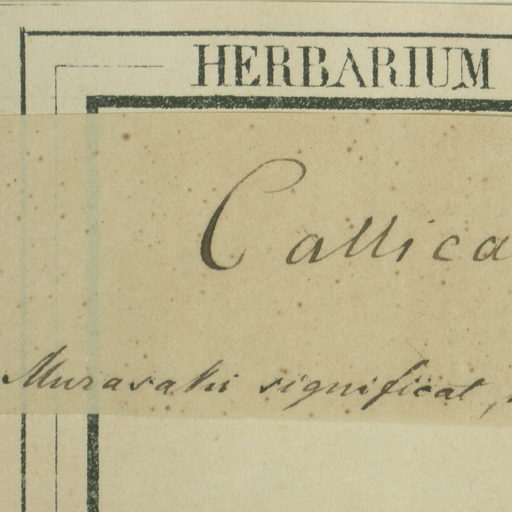 HERBARIUM
Callica
Murasaki significat,